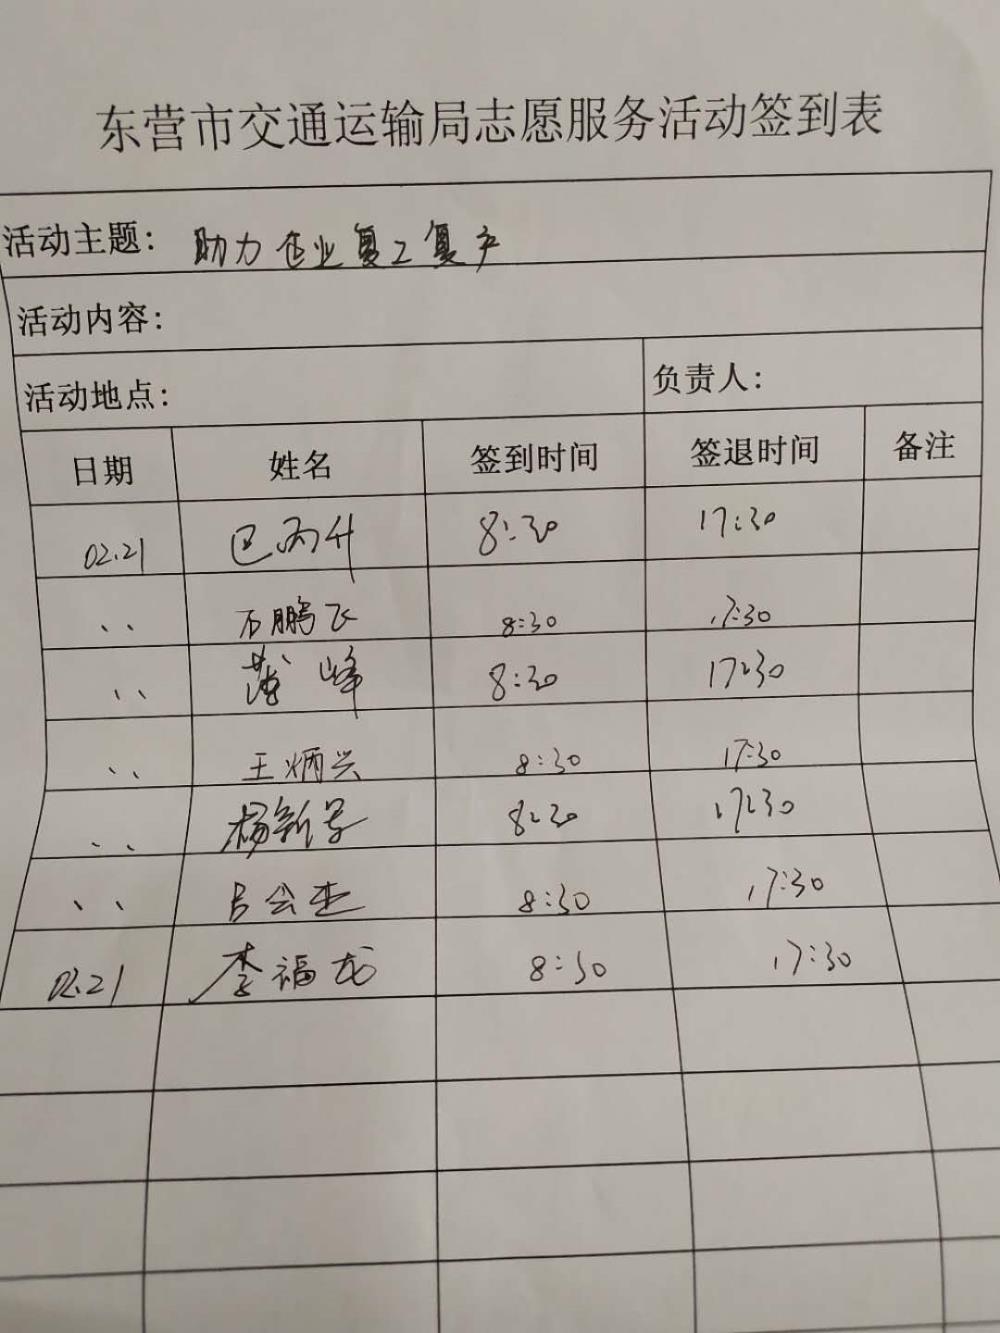 东营市交通运输局志愿服务活动签到表
活动主题: 助力企业复工复产
活动内容:
活动地点:
负责人:
日期 姓名 签到时间 签退时间 备注
02.21 巴丙升 8:30 17:30
、、 石鹏飞 8:30 17:30
、、 薄峰 8:30 17:30
、、 王炳兴 8:30 17:30
、、 杨新 8:30 17:30
、、 吕会杰 8:30 17:30
02.21 李福龙 8:30 17:30